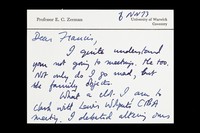 Professor E. C. Zeeman
University of Warwick
Coventry
Dear Francis,
I quite understand
you not going to meetings. Me too,
NOT only do I go mad, but
the family objects.
What a clot I am to
clash with Lewis Wolpert's CIBA
meeting. I debated altering ours